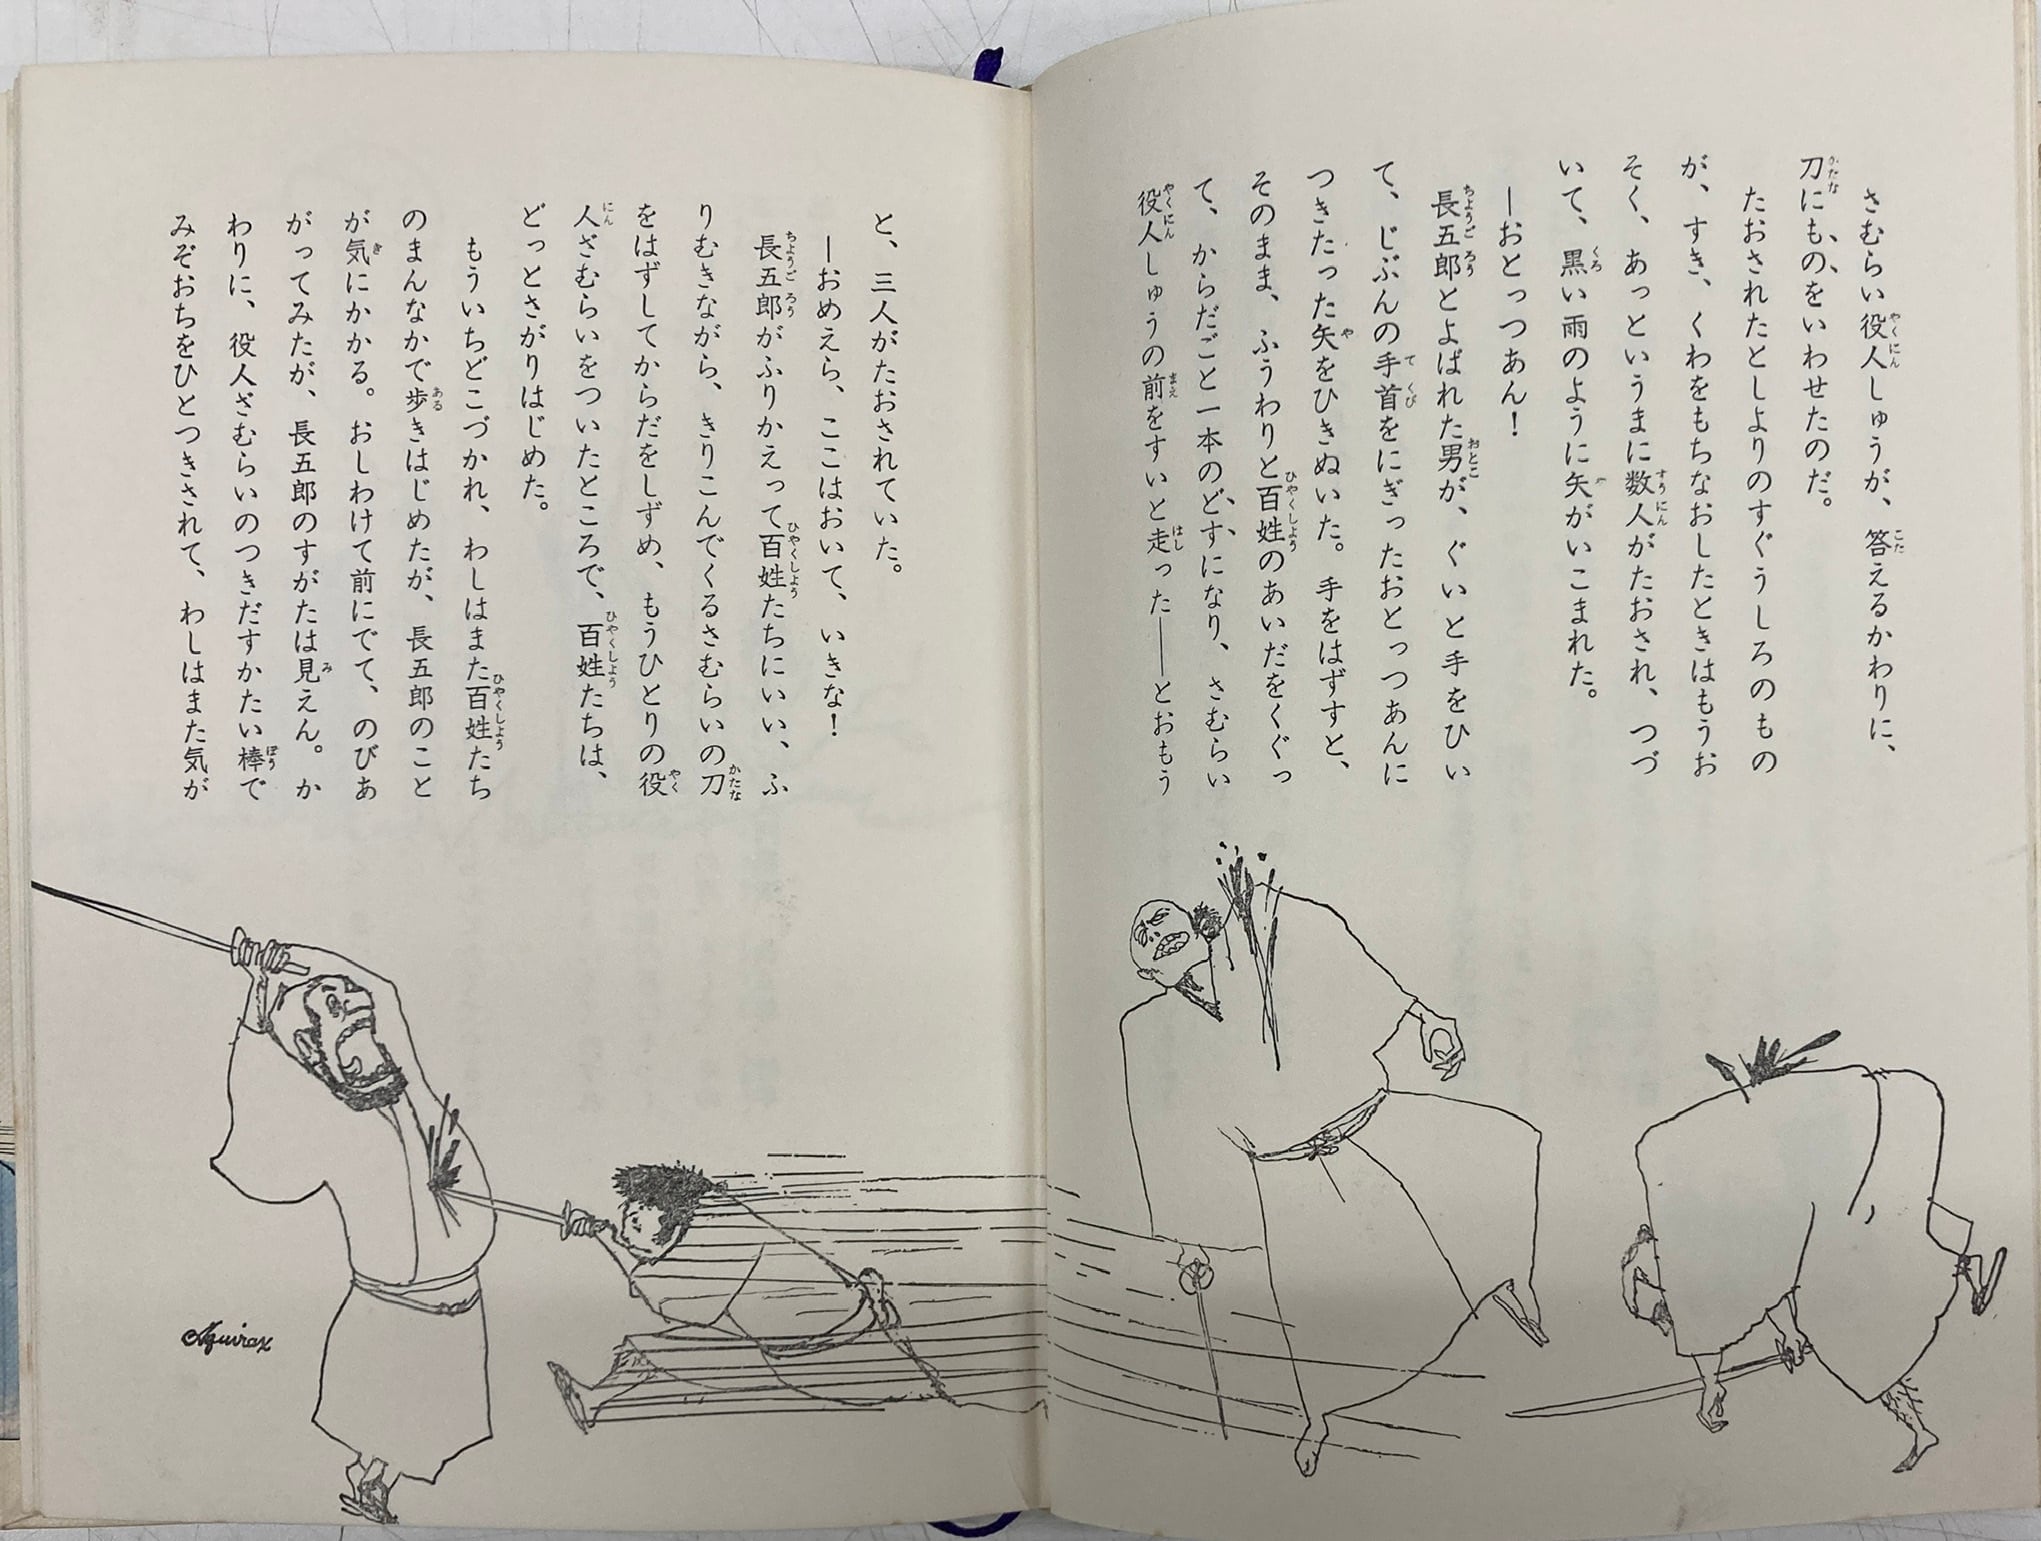 さむらい役人しゅうが、答えるかわりに、
刀にものをいわせたのだ。
たおされたとしよりのすぐうしろのもの
が、すき、くわをもちなおしたときはもうお
そく、あっというまに数人がたおされ、つづ
いて、黒い雨のように矢がいこまれた。
―おとっつあん！
長五郎とよばれた男が、ぐいと手をひい
て、じぶんの手首をにぎったおとっつあんに
つきたった矢をひきぬいた。手をはずすと、
そのまま、ふうわりと百姓のあいだをくぐっ
て、からだごと一本のどすになり、さむらい
役人しゅうの前をすいと走った――とおもう
と、三人がたおされていた。
―おめえら、ここはおいて、いきな！
長五郎がふりかえって百姓たちにいい、ふ
りむきながら、きりこんでくるさむらいの刀
をはずしてからだをしずめ、もうひとりの役
人ざむらいをついたところで、百姓たちは、
どっとさがりはじめた。
もういちどこづかれ、わしはまた百姓たち
のまんなかで歩きはじめたが、長五郎のこと
が気にかかる。おしわけて前にでて、のびあ
がってみたが、長五郎のすがたは見えん。か
わりに、役人ざむらいのつきだすかたい棒で
みぞおちをひとつきされて、わしはまた気が
Aguirax